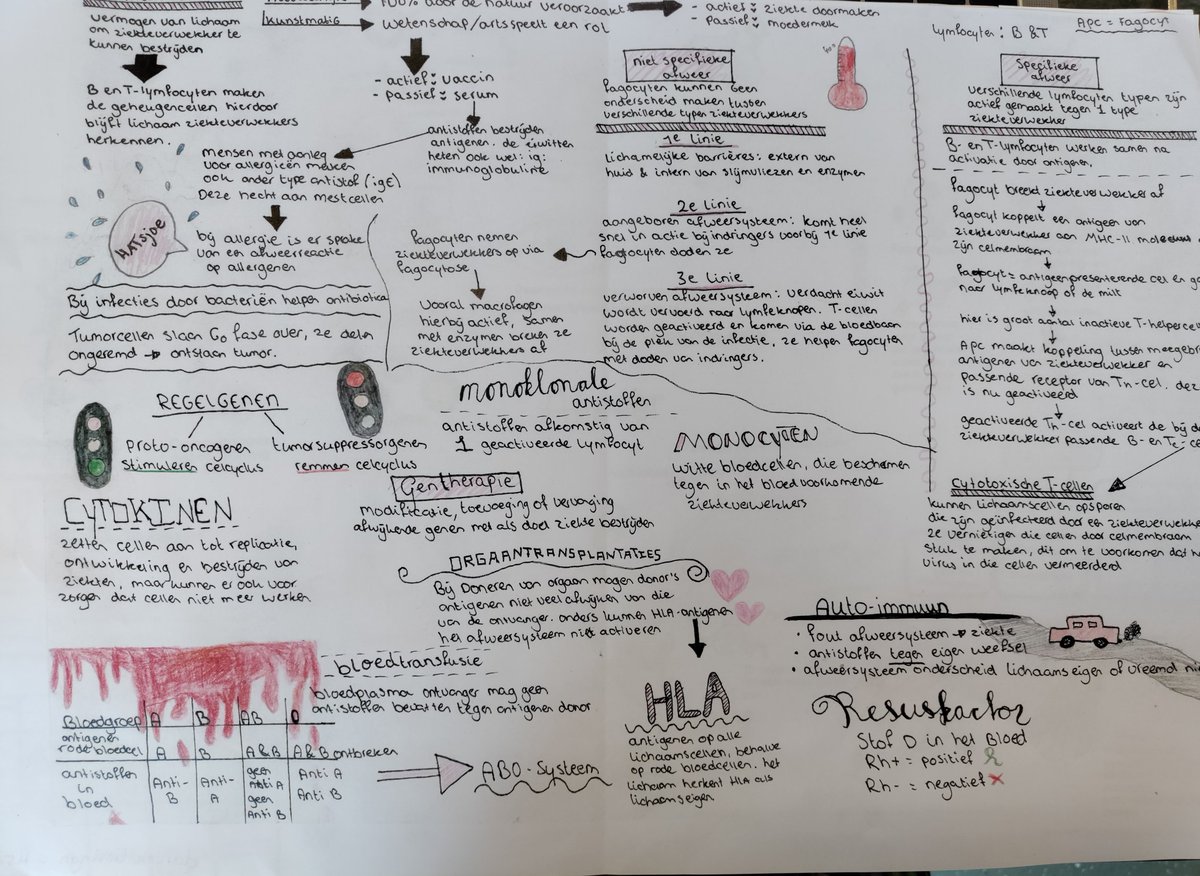 vermogen van lichaam
om ziekteverwekker te
kunnen bestrijden
B en T-lymfocyten maken
de geheugencellen hierdoor
blijft lichaam ziekteverwekkers
herkennen.
Kunstmatig
100% door de natuur veroorzaakt
wetenschap/arts speelt een rol
- actief: ziekte doormaken
- passief: moedermelk
- actief: vaccin
- passief: serum
antistoffen bestrijden
antigenen. de eiwitten
heten ook wel: ig:
immunoglobuline
mensen met aanleg
voor allergieën maken
ook ander type antistof (igE)
Deze hecht aan mestcellen
HATSJOE
bij allergie is er sprake
van een afweerreactie
op allergenen
Bij infecties door bacteriën helpen antibiotica
Tumorcellen slaan G0 fase over, ze delen
ongeremd → ontstaan tumor.
niet specifieke
afweer
fagocyten kunnen geen
onderscheid maken tussen
verschillende typen ziekteverwekkers
1e Linie
lichamelijke barrières: extern van
huid & intern van slijmvliezen en enzymen
2e Linie
aangeboren afweersysteem: komt heel
snel in actie bij indringers voorbij 1e linie
fagocyten doden ze
fagocyten nemen
ziekteverwekkers op via
fagocytose
vooral macrofagen
hierbij actief, samen
met enzymen breken ze
ziekteverwekkers af
3e Linie
verworven afweersysteem: verdacht eiwit
wordt vervoerd naar lymfeknopen. T-cellen
worden geactiveerd en komen via de bloedbaan
bij de plek van de infectie, ze helpen fagocyten
met doden van indringers.
lymfocyten: B & T
Apc = fagocyt
Specifieke
afweer
verschillende lymfocyten typen zijn
actief gemaakt tegen 1 type
ziekteverwekker
B- en T-lymfocyten werken samen na
activatie door antigenen.
fagocyt breekt ziekteverwekker af
fagocyt koppelt een antigeen van
ziekteverwekker aan MHC-II molecuul
zijn celmembraan
fagocyt = antigeenpresenterende cel en
naar lymfeknoop of de milt
hier is groot aantal inactieve T-helpercel
Apc maakt koppeling tussen
antigenen van ziekteverwekker en
passende receptor van Th-cel.
is nu geactiveerd
geactiveerde Th-cel activeert de bij
ziekteverwekker passende B- en Tc-
Cytotoxische T-cellen
kunnen lichaamscellen opsporen
die zijn geïnfecteerd door een ziekteverwekke
ze vernietigen die cellen door celmembraan
stuk te maken, dit om te voorkomen dat
virus in die cellen vermeerderd
REGELGENEN
proto-oncogenen
stimuleren celcyclus
tumorsuppressorgenen
remmen celcyclus
monoklonale
antistoffen
antistoffen afkomstig van
1 geactiveerde lymfocyt
MONOCYTEN
witte bloedcellen, die beschermen
tegen in het bloed voorkomende
ziekteverwekkers
Gentherapie
modificatie, toevoeging of vervanging
afwijkende genen met als doel ziekte bestrijden
CYTOKINEN
zetten cellen aan tot replicatie,
ontwikkeling en bestrijden van
ziekten, maar kunnen er ook voor
zorgen dat cellen niet meer werken
ORGAANTRANSPLANTATIES
Bij Doneren van orgaan mogen donor's
antigenen niet veel afwijken van die
van de ontvanger. anders kunnen HLA-antigenen
het afweersysteem niet activeren
HLA
antigenen op alle
lichaamscellen, behalve
op rode bloedcellen. het
lichaam herkent HLA als
lichaamseigen.
Auto-immuun
• fout afweersysteem → ziekte
• antistoffen tegen eigen weefsel
• afweersysteem onderscheid lichaamseigen of vreemd
Resusfactor
Stof D in het Bloed
Rh+ = positief
Rh- = negatief
bloedtransfusie
bloedplasma ontvanger mag geen
antistoffen bevatten tegen antigenen donor
Bloedgroep A B AB 0
antigenen
rode bloedcel A B A&B A&B ontbreken
antistoffen
in
bloed
Anti-
B
Anti-
A
geen
Anti A
geen
Anti B
Anti A
Anti B
ABO-Systeem